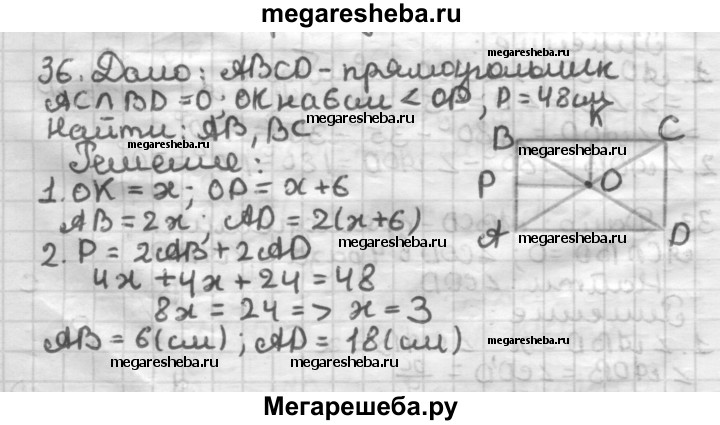 megaresheba.ru
36. Дано: ABCD - прямоугольник
megaresheba.ru
AC∩BD = O; OK на 6 см < OP, P = 48 см
megaresheba.ru
Найти: AB, BC
Решение:
1. OK = x; OP = x+6
megaresheba.ru
AB = 2x; AD = 2(x+6)
megaresheba.ru
2. P = 2AB + 2AD
megaresheba.ru
4x + 4x + 24 = 48
8x = 24 => x = 3
megaresheba.ru
AB = 6 (см); AD = 18 (см)
megaresheba.ru
megaresheba.ru
megaresheba.ru
K
B
C
megaresheba.ru
P
O
A
D
megaresheba.ru
Мегарешеба.ру